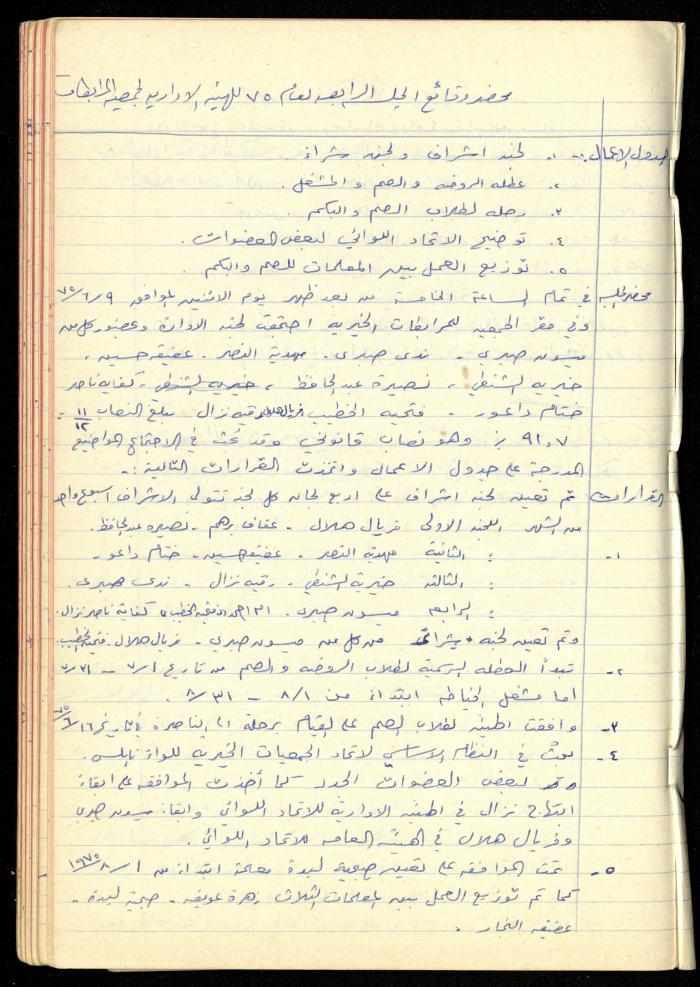 محضر وقائع الجلسه الرابعه لعام ٧٥ للهيئه الاداريه لجمعيه المرابطات
جدول الاعمال :- ١. لجنه اشراف ولجنه شراء .
٢. عطله الروضه والصم والمشغل .
٣. رحله لطلاب الصم والبكم .
٤. توضيح الاتحاد اللوائي لبعض العضوات .
٥. توزيع العمل بين المعلمات للصم والبكم .
محضر الجلسه في تمام الساعة الخامسة من بعد ظهر يوم الاثنين الموافق ٩/٦/٧٥
وفي مقر الجمعيه للمرابطات الخيريه اجتمعت لجنه الادارة وبحضور كل من
ميسون صبري - ندى صبري . مهدية النصر . عفيفه حسين ،
خيريه الشنطي ، نصيرة عبد الحافظ ، خيريه الشنطي ، كفايه ناصر
ختام داعور - فتحيه الخطيب فريال هلال رقيه نزال بلغ النصاب ١١/١٢ =
٩١,٧ % وهو نصاب قانوني وقد بحث في الاجتماع المواضيع
المدرجة على جدول الاعمال واتخذت القرارات التالية :-
القرارات تم تعيين لجنه اشراف على اربع لجان كل لجنه تتولى الاشراف اسبوع واحد
من الشهر اللجنه الاولى فريال هلال - عفاف برهم - نصيره عبد الحافظ .
١- : الثانية مهدية النصر - عفيفه حسين - ختام داعور -
: الثالثه خيرية الشنطي - رقيه نزال - ندى صبري .
: الرابعه ميسون صبري - فتحيه الخطيب كفاية ناصر نزال .
وتم تعيين لجنه شراء من كل من ميسون صبري - فريال هلال . فتحيه الخطيب
٢- تبدأ العطله الرسمية لطلاب الروضه والصم من تاريخ ١/٧ - ٣١/٧
اما مشغل الخياطه ابتداء من ١/٨ - ٣١/٨ .
٣- وافقت الهيئه لطلاب الصم على القيام برحلة الى الناصرة في تاريخ ١٦/٦/٧٥
٤- بحث في النظام الاساسي لاتحاد الجمعيات الخيريه للواء نابلس .
وقد لبعض العضوات الجدد كما أخذت الموافقه على ابقاء
ابتهاج نزال في الهيئه الادارية للاتحاد اللوائي وابقاء ميسون صبري
وفريال هلال في الهيئه العامه للاتحاد اللوائي .
٥- تمت الموافقه على تعيين صبحية لبدة معلمة ابتداء من ١/٨/١٩٧٥
كما تم توزيع العمل بين المعلمات الثلاث زهرة عويضه - صبحية لبدة -
عفيفه النجار .